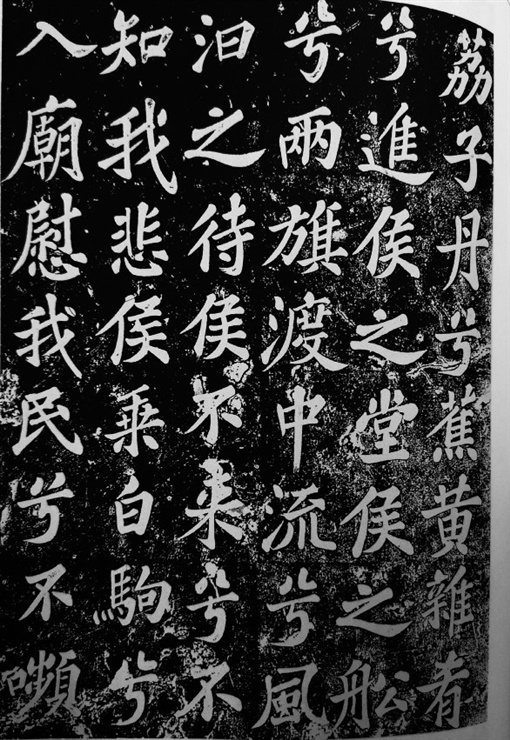 荔子丹兮蕉黄雜肴
兮進侯之堂侯之舩
兮两旗渡中流兮風
汩之待侯不来兮不
知我悲侯乗白駒兮
入廟慰我民兮不嚬